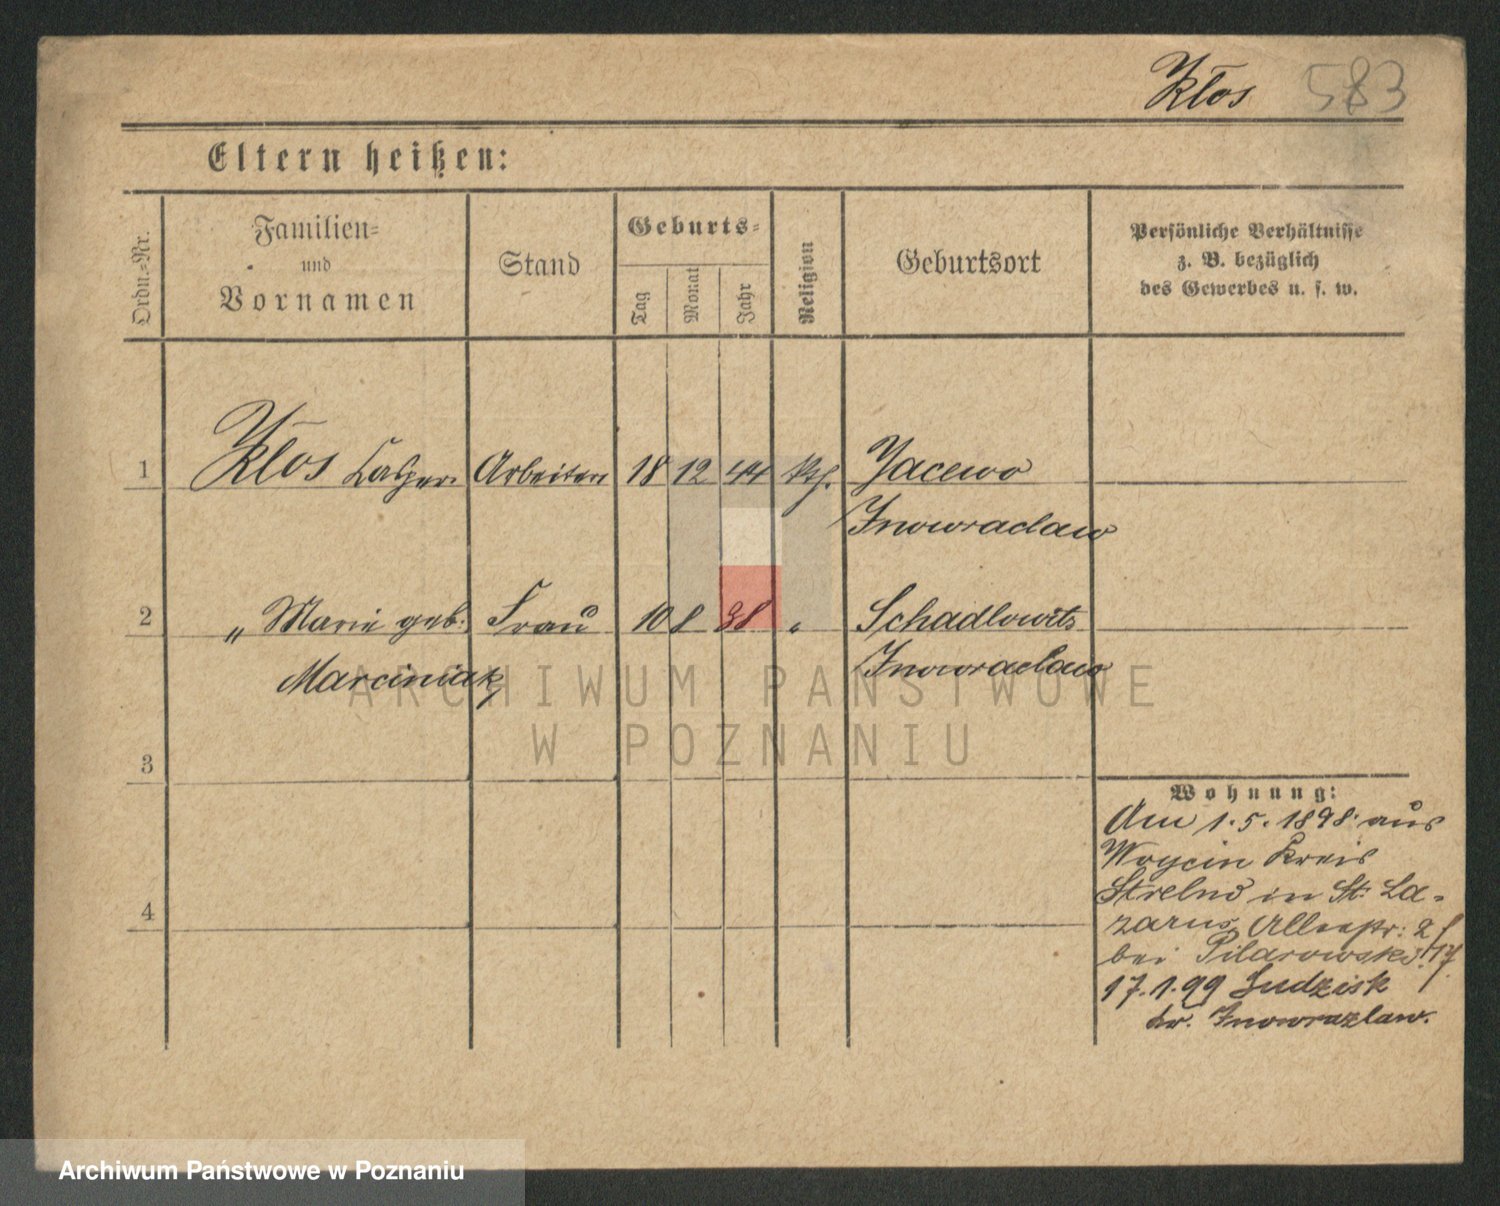 Kłos 583
Eltern heißen:
Ordn.-Nr.
Familien-
und
Vornamen
Stand
Geburts-
Tag
Monat
Jahr
Religion
Geburtsort
Persönliche Verhältnisse
z. B. bezüglich
des Gewerbes u. s. w.
1 Kłos Casper Arbeiter 18 12 44 kth. Jacewo
Inowraclaw
2 " Marie geb. Frau 10 8 38 " Schadlowitz
Marciniak Inowraclaw
3
Wohnung:
Am 1.5.1898 aus
Woycin Kreis
Strelno in St. La-
4
zarus
bei Pilarowski
17.1.99
Kr. Inowrazlaw.
ARCHIWUM PAŃSTWOWE
W POZNANIU
Archiwum Państwowe w Poznaniu